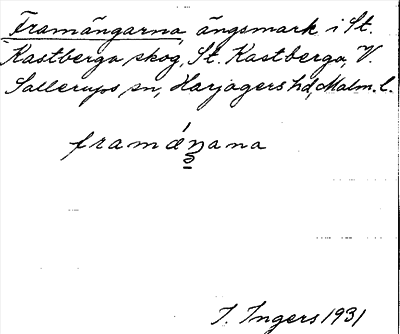 Framängarna, ängsmark i St.
Kastberga skog, St. Kastberga, V.
Sallerups sn, Harjagers hd, Malm. l.
framáŋana
I. Ingers 1931